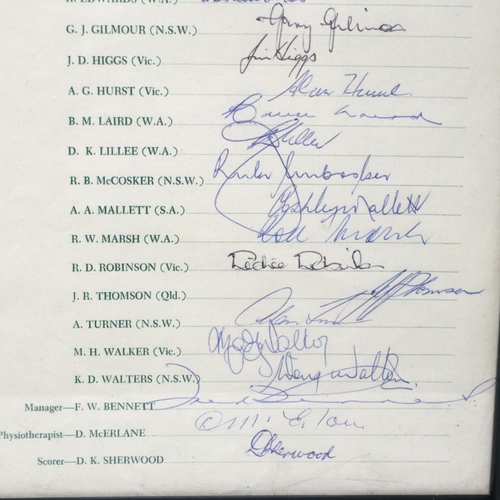 R. EDWARDS (W.A.)
G. J. GILMOUR (N.S.W.) Gary Gilmour
J. D. HIGGS (Vic.) Jim Higgs
A. G. HURST (Vic.) Alan Hurst
B. M. LAIRD (W.A.) Bruce Laird
D. K. LILLEE (W.A.) Lillee
R. B. McCOSKER (N.S.W.)
A. A. MALLETT (S.A.) Ashley Mallett
R. W. MARSH (W.A.) Rod Marsh
R. D. ROBINSON (Vic.) Richie Robinson
J. R. THOMSON (Qld.) Jeff Thomson
A. TURNER (N.S.W.) Alan Turner
M. H. WALKER (Vic.) Walker
K. D. WALTERS (N.S.W.) Doug Walters
Manager—F. W. BENNETT
Physiotherapist—D. McERLANE
Scorer—D. K. SHERWOOD D Sherwood